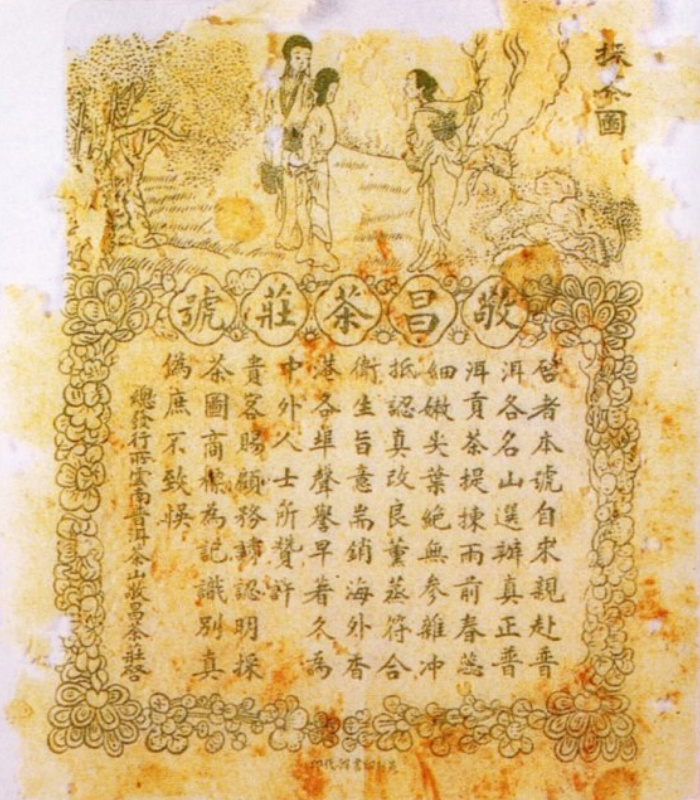 採茶圖
敬昌茶莊號
啓者本號自来親赴普
洱各名山選辦真正普
洱貢茶提揀雨前春蕊
細嫩尖葉絶無參雜冲
抵認真改良薰蒸符合
衛生旨意耑銷海外香
港各埠聲譽早著久為
中外人士所贊許
貴客賜顧務請認明採
茶圖商標為記識別真
偽庶不致悞
總發行所雲南普洱茶山敬昌茶莊啓